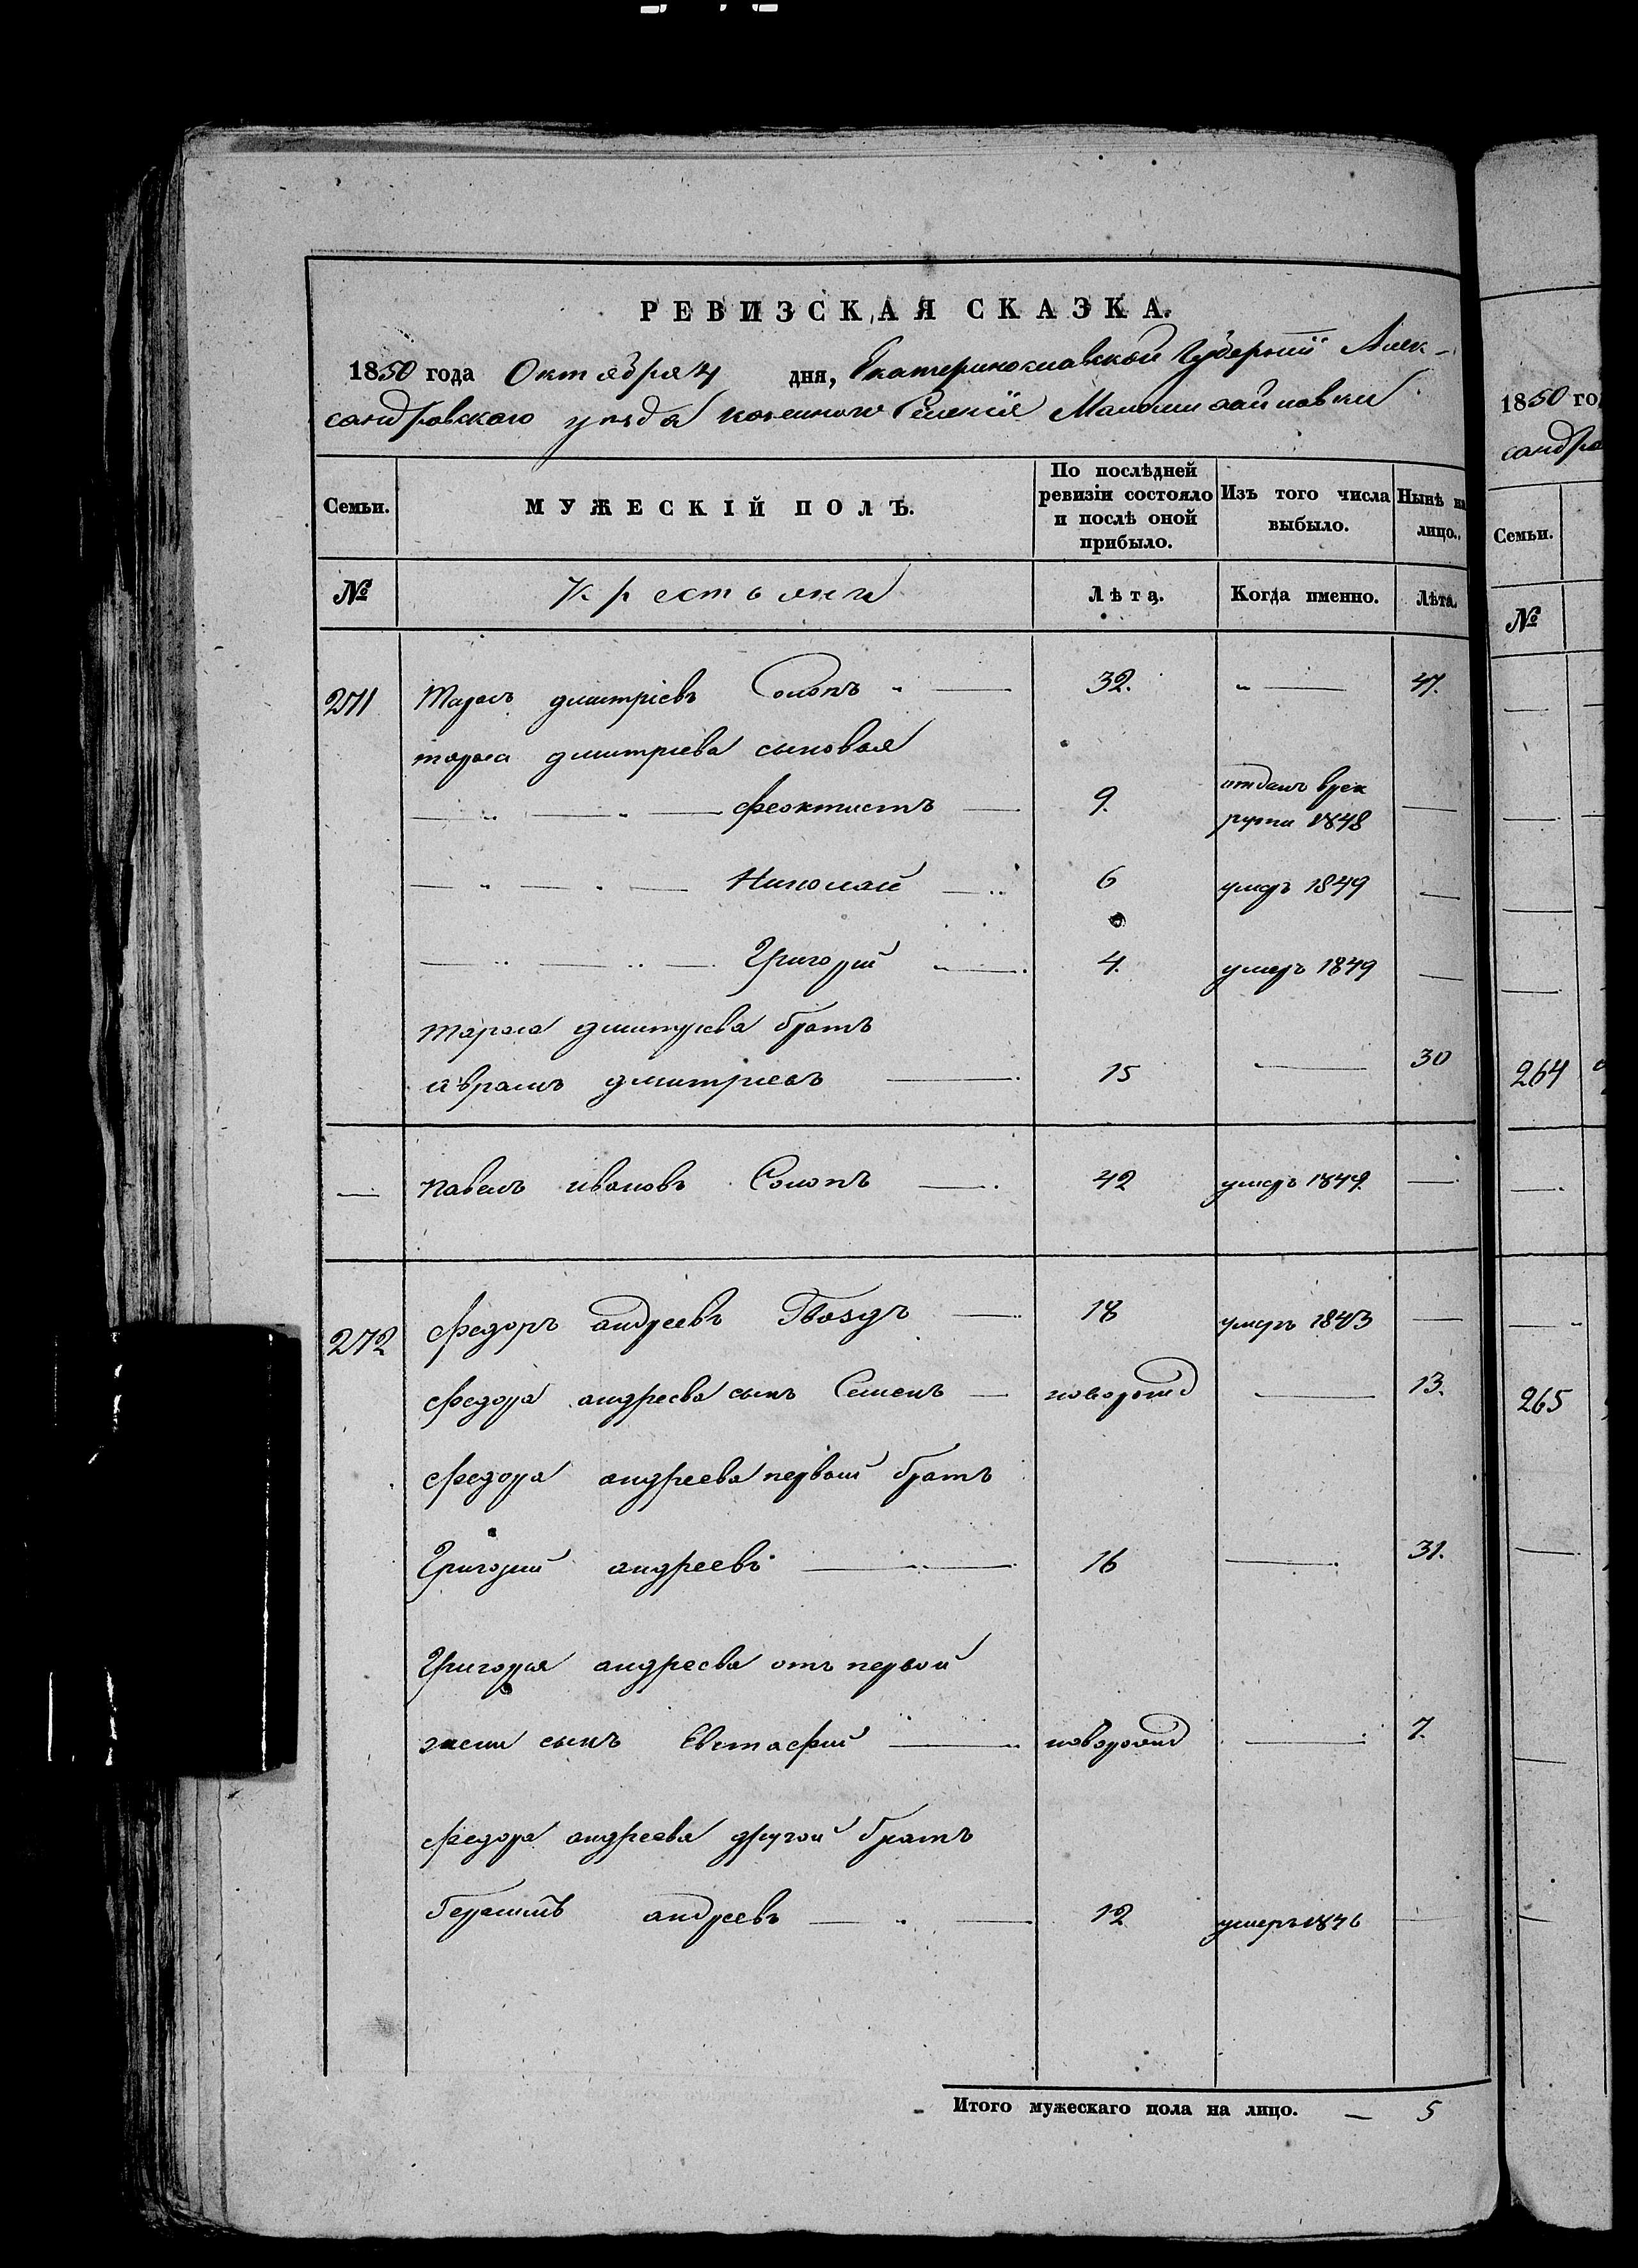 РЕВИЗСКАЯ СКАЗКА.
1850 года Октября 4 дня, Екатеринославской Губерніи Алек-
сандровскаго уезда казеннаго Селенія Маломихайловки
Семьи.
МУЖЕСКІЙ ПОЛЪ.
По послѣдней ревизіи состояло и послѣ оной прибыло.
Изъ того числа выбыло.
Нынѣ на лицо.
№ Крестьяни Лѣта. Когда именно. Лѣта.
271 Тарасъ дмитріевъ Солопъ 32. 47.
тараса дмитриева сыновья
Феоктистъ 9. отданъ врек
рути 1848
Николай 6 умеръ 1849
Григорий 4. умеръ 1849
тараса дмитриева братъ
аврамъ дмитриевъ 15 30
павелъ ивановъ Солопъ 42 умеръ 1849.
272 федоръ андреевъ Гвоздь 18 умеръ 1843
федора андреева сынъ Семенъ новорожд 13.
федора андреева первый братъ
Григорий андреевъ 16 31.
Григория андреева отъ первой
жены сынъ Евстафий новорожд 7.
федора андреева другой братъ
Герасимъ андреевъ 12 умеръ 1846
Итого мужескаго пола на лицо. — 5
1850 го
сандро
Семьи.
№
264
265